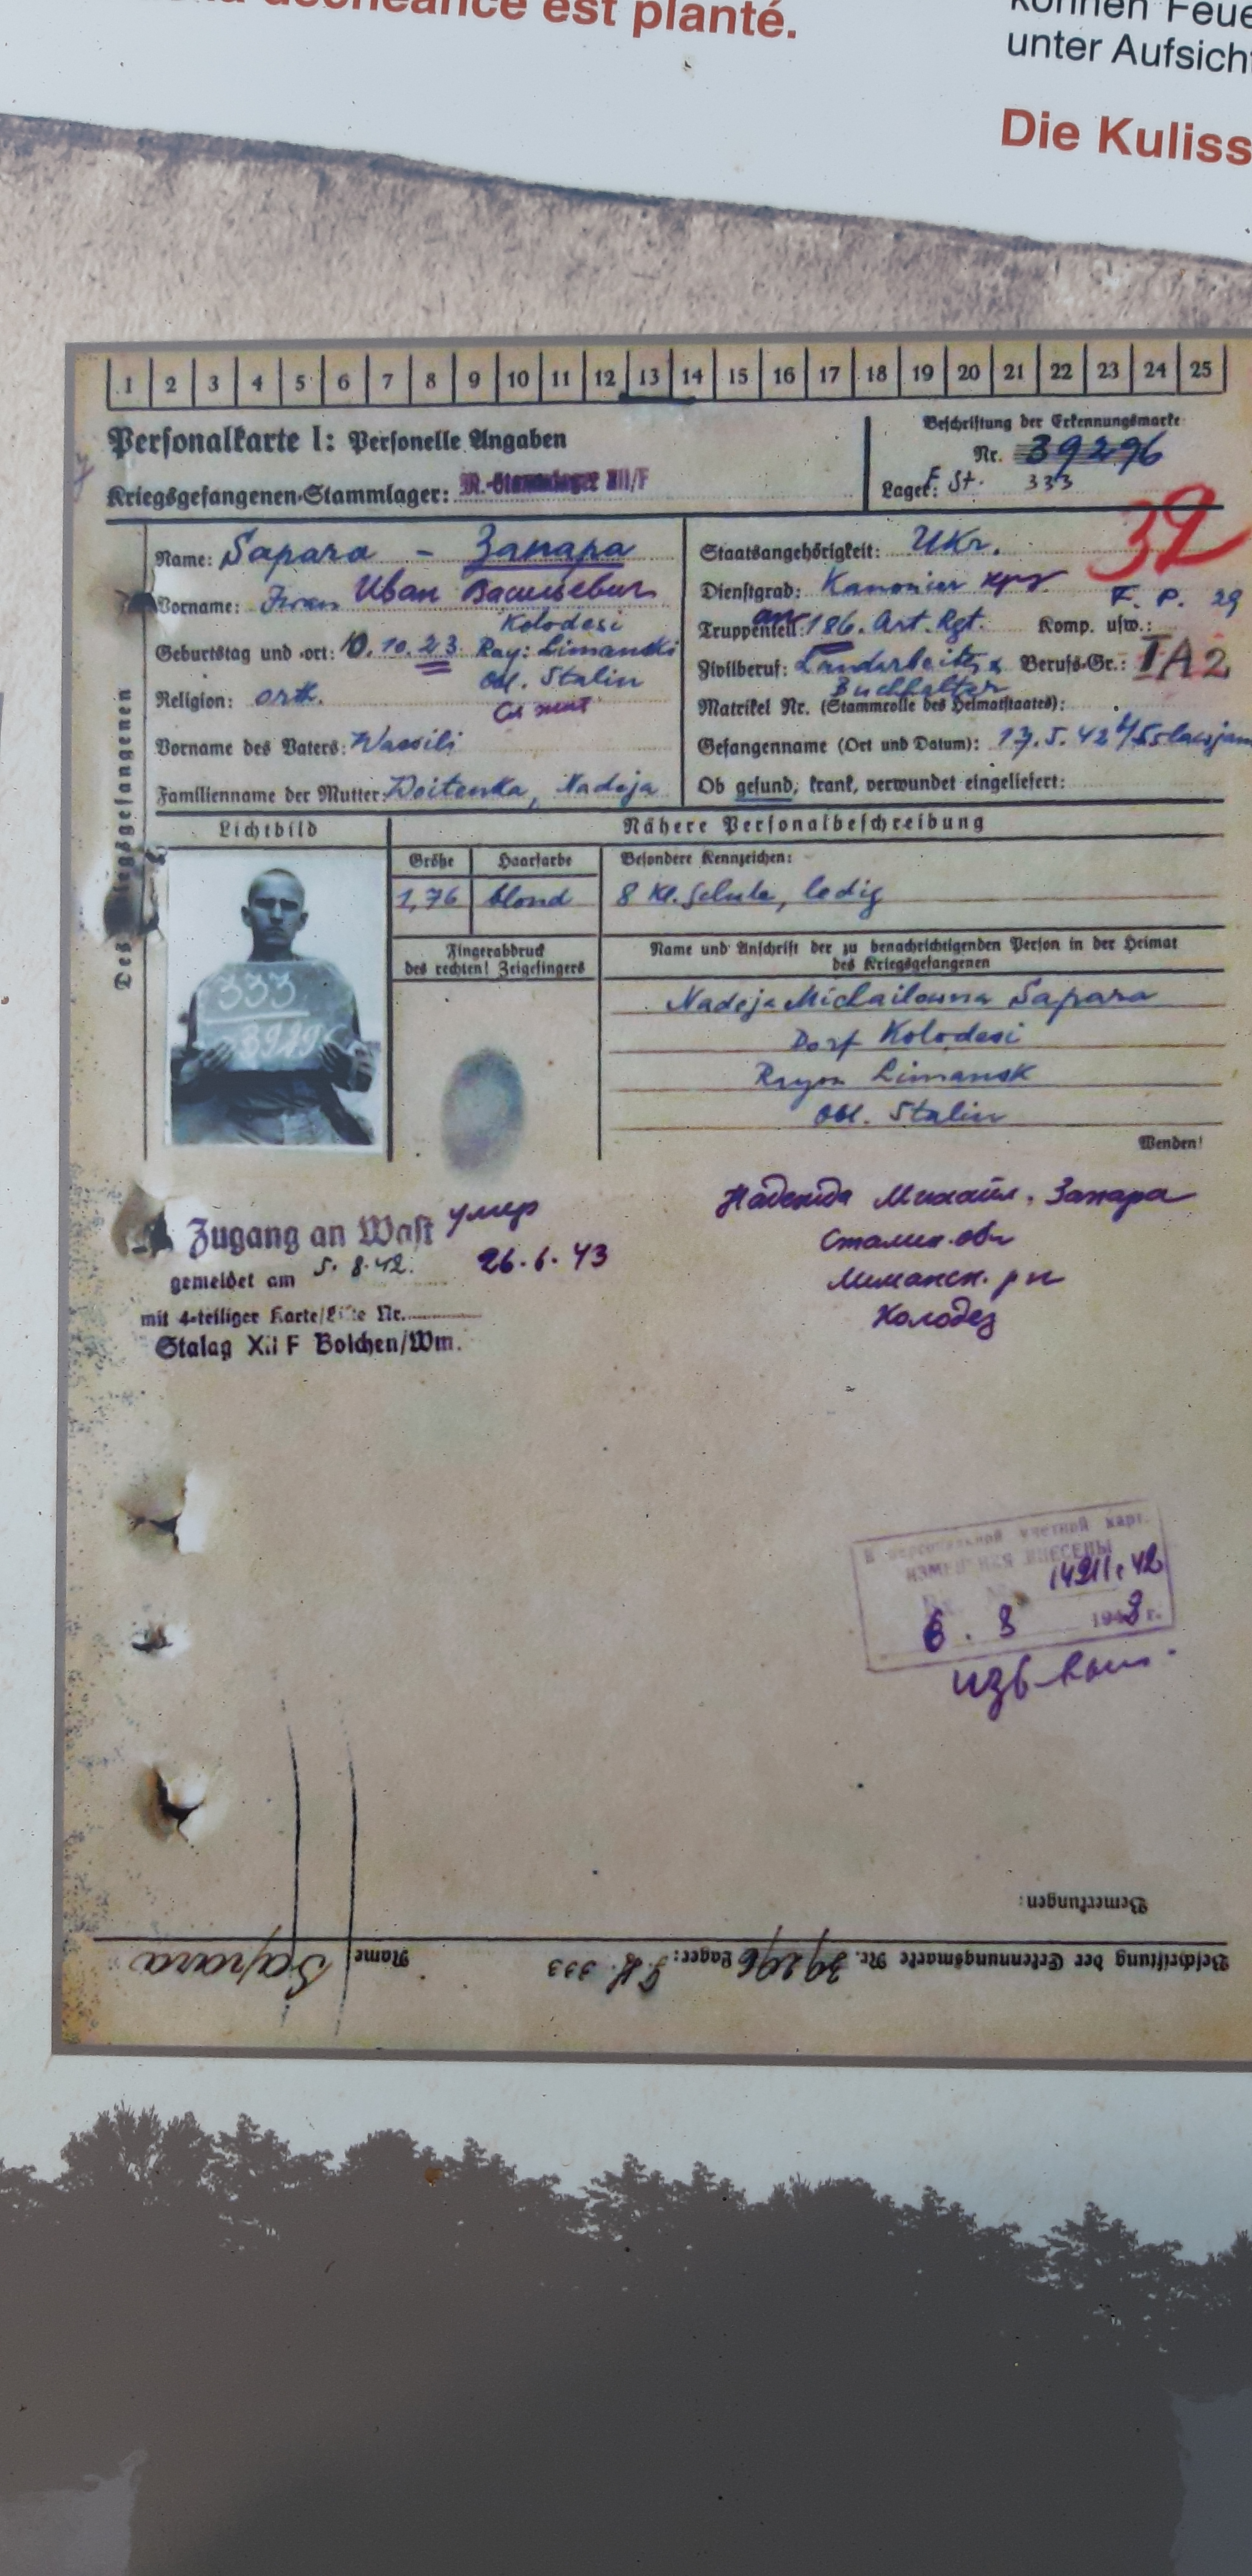 déchéance est planté.
können Feue
unter Aufsicht
Die Kuliss
1 2 3 4 5 6 7 8 9 10 11 12 13 14 15 16 17 18 19 20 21 22 23 24 25
Personalkarte I: Personelle Angaben
Kriegsgefangenen-Stammlager: M.-Stammlager XII/F
Beschriftung der Erkennungsmarke
Nr. 39296
Lager: F. St. 333
32
Des Kriegsgefangenen
Name: Sapara - Запара
Vorname: Iwan Иван Васильевич
Geburtstag und -ort: 10.10.23. Kolodesi
Ray: Limanski
Obl. Stalin
Religion: orth.
Vorname des Vaters: Wassili
Familienname der Mutter: Woitenka, Nadeja
Staatsangehörigkeit: Ukr.
Dienstgrad: Kanonier
F. P. 29
Truppenteil: 186. Art. Rgt. Komp. usw.:
Zivilberuf: Landarbeiter Berufs-Gr.: I A 2
Buchhalter
Matrikel Nr. (Stammrolle des Heimatstaates):
Gefangennahme (Ort und Datum): 17.5.42
Ob gesund, krank, verwundet eingeliefert:
Lichtbild
Nähere Personalbeschreibung
Größe Haarfarbe Besondere Kennzeichen:
1,76 blond 8 Kl. Schule, ledig
333
3929
Fingerabdruck
des rechten! Zeigefingers
Name und Anschrift der zu benachrichtigenden Person in der Heimat
des Kriegsgefangenen
Nadeja Michailowna Sapara
Dorf Kolodesi
Rayon Limansk
Obl. Stalin
Wenden!
Zugang an Wast
gemeldet am 5.8.42.
mit 4-teiliger Karte/Liste Nr.
Stalag XII F Bolchen/Wm.
умер
26.6.43
Надежда Михайл. Запара
Сталин. обл
Лиманск. р-н
Колодез
В персональной учетной карт.
ИЗМЕНЕНИЯ ВНЕСЕНЫ
6. 8 194 г.
Bemerkungen:
Beschriftung der Erkennungsmarke Nr. 39296 Lager: 333
Name Sapara